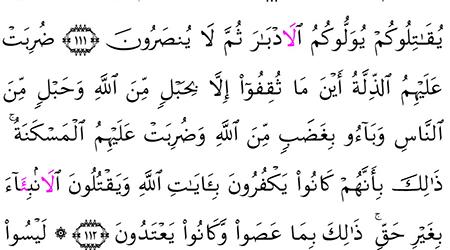 يُقَٰتِلُوكُمْ يُوَلُّوكُمُ ٱلَادْبَٰرَ ثُمَّ لَا يُنصَرُونَ ۝١١١ ضُرِبَتْ
عَلَيْهِمُ ٱلذِّلَّةُ أَيْنَ مَا ثُقِفُوٓا۟ إِلَّا بِحَبْلٍ مِّنَ ٱللَّهِ وَحَبْلٍ مِّنَ
ٱلنَّاسِ وَبَآءُو بِغَضَبٍ مِّنَ ٱللَّهِ وَضُرِبَتْ عَلَيْهِمُ ٱلْمَسْكَنَةُ ۚ
ذَٰلِكَ بِأَنَّهُمْ كَانُوا۟ يَكْفُرُونَ بِـَٔايَٰتِ ٱللَّهِ وَيَقْتُلُونَ ٱلَانۢبِـَٔآءَ
بِغَيْرِ حَقٍّ ۚ ذَٰلِكَ بِمَا عَصَوا۟ وَّكَانُوا۟ يَعْتَدُونَ ۝١١٢ ۞ لَيْسُوا۟